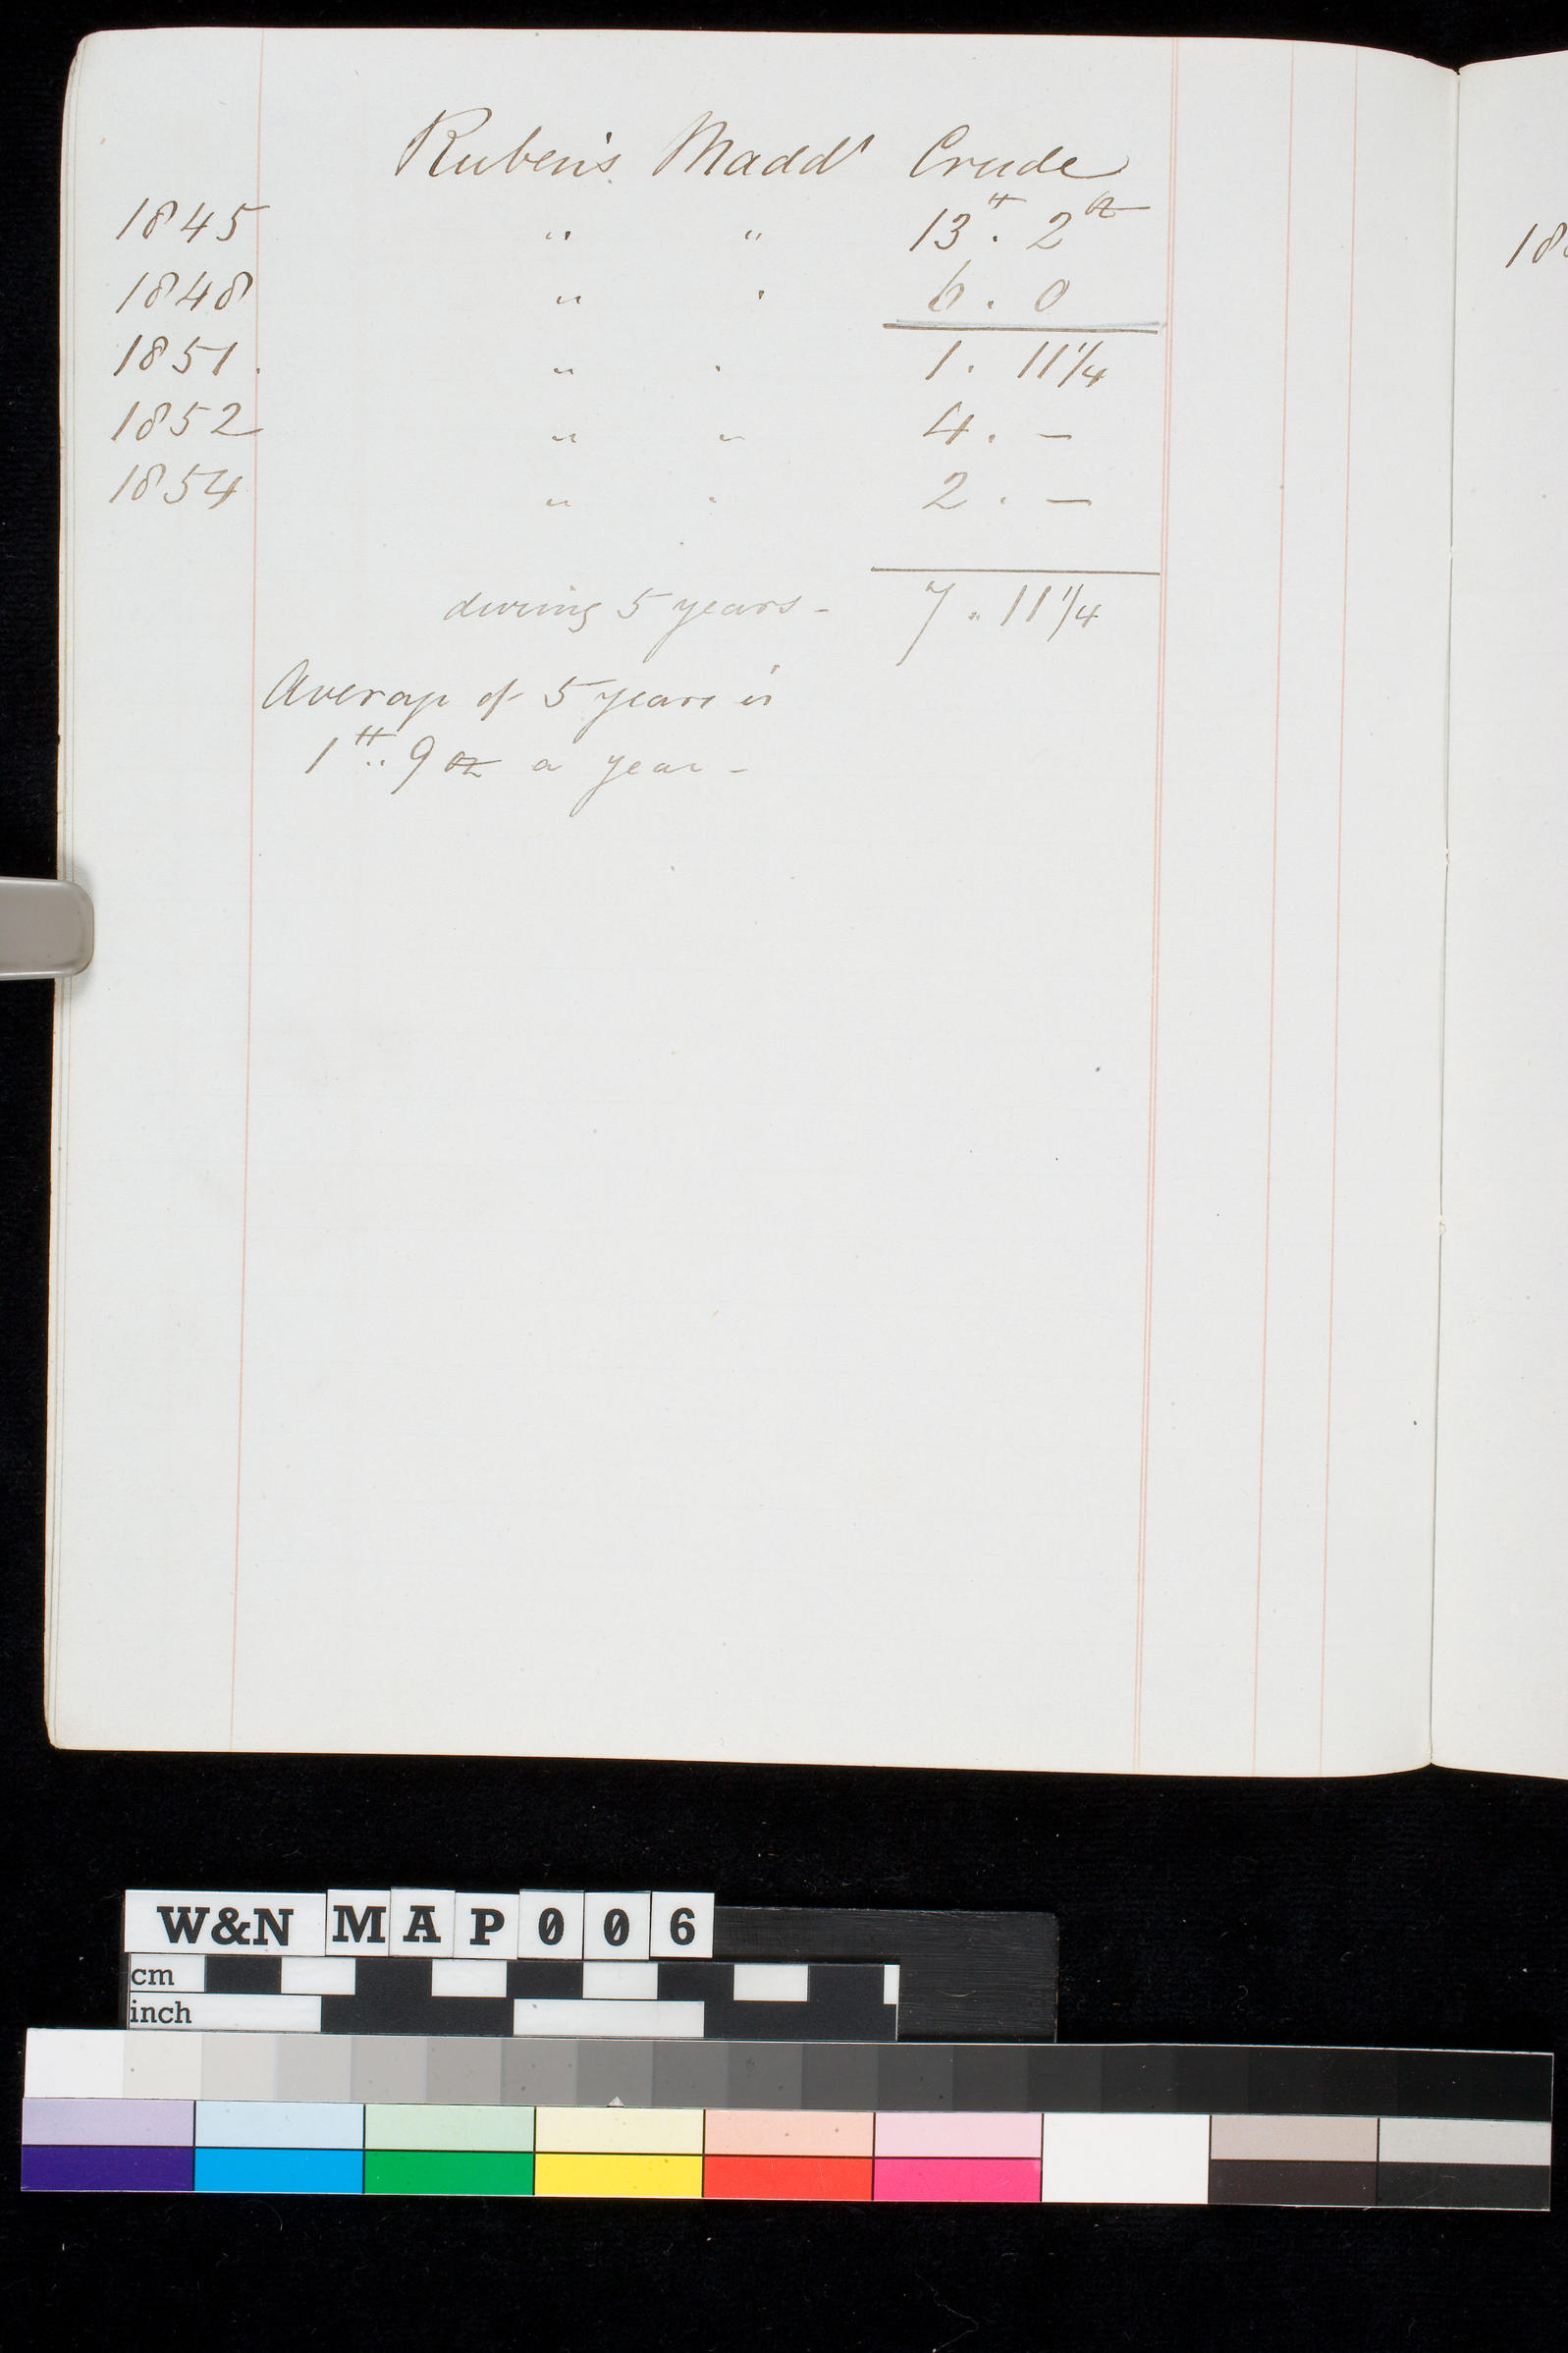 Rubens Madd^r Crude
1845 " " 13 ℔. 2 oz
1848 " " 6. 0
1851. " " 1. 11 1/4
1852 " " 4. –
1854 " " 2. –
during 5 years – 7. 11 1/4
Average of 5 years is
1 ℔.. 9 oz a year –
18
W&N MAP006
cm
inch